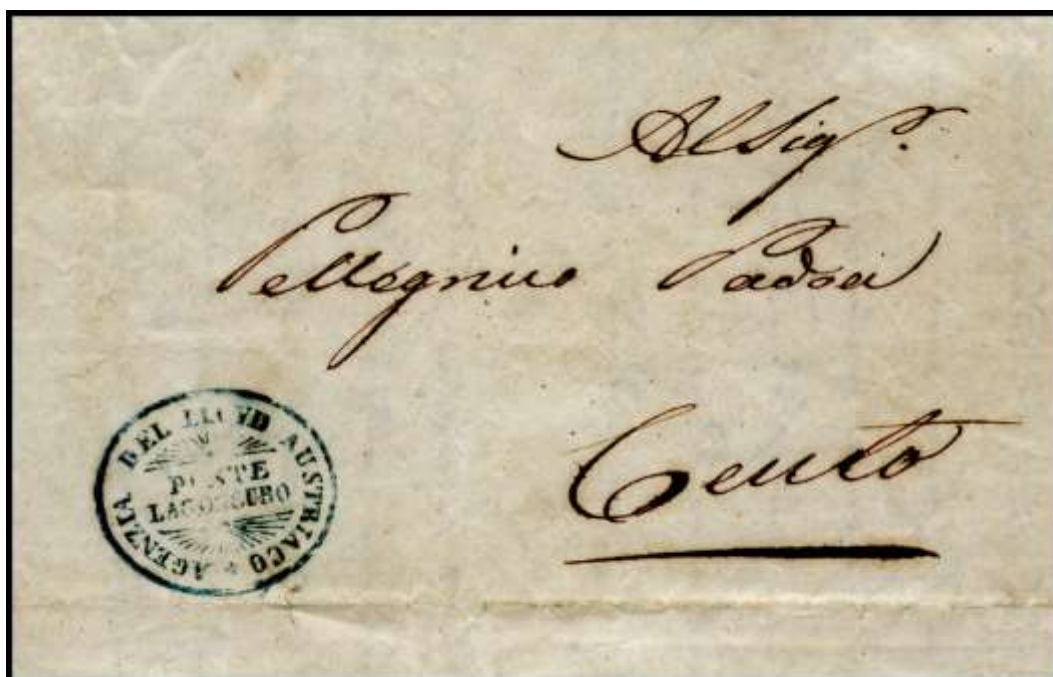 Al Sigr.
Pellegrino Padoa
Cento
AGENZIA DEL LLOYD AUSTRIACO
PONTE
LAGOSCURO